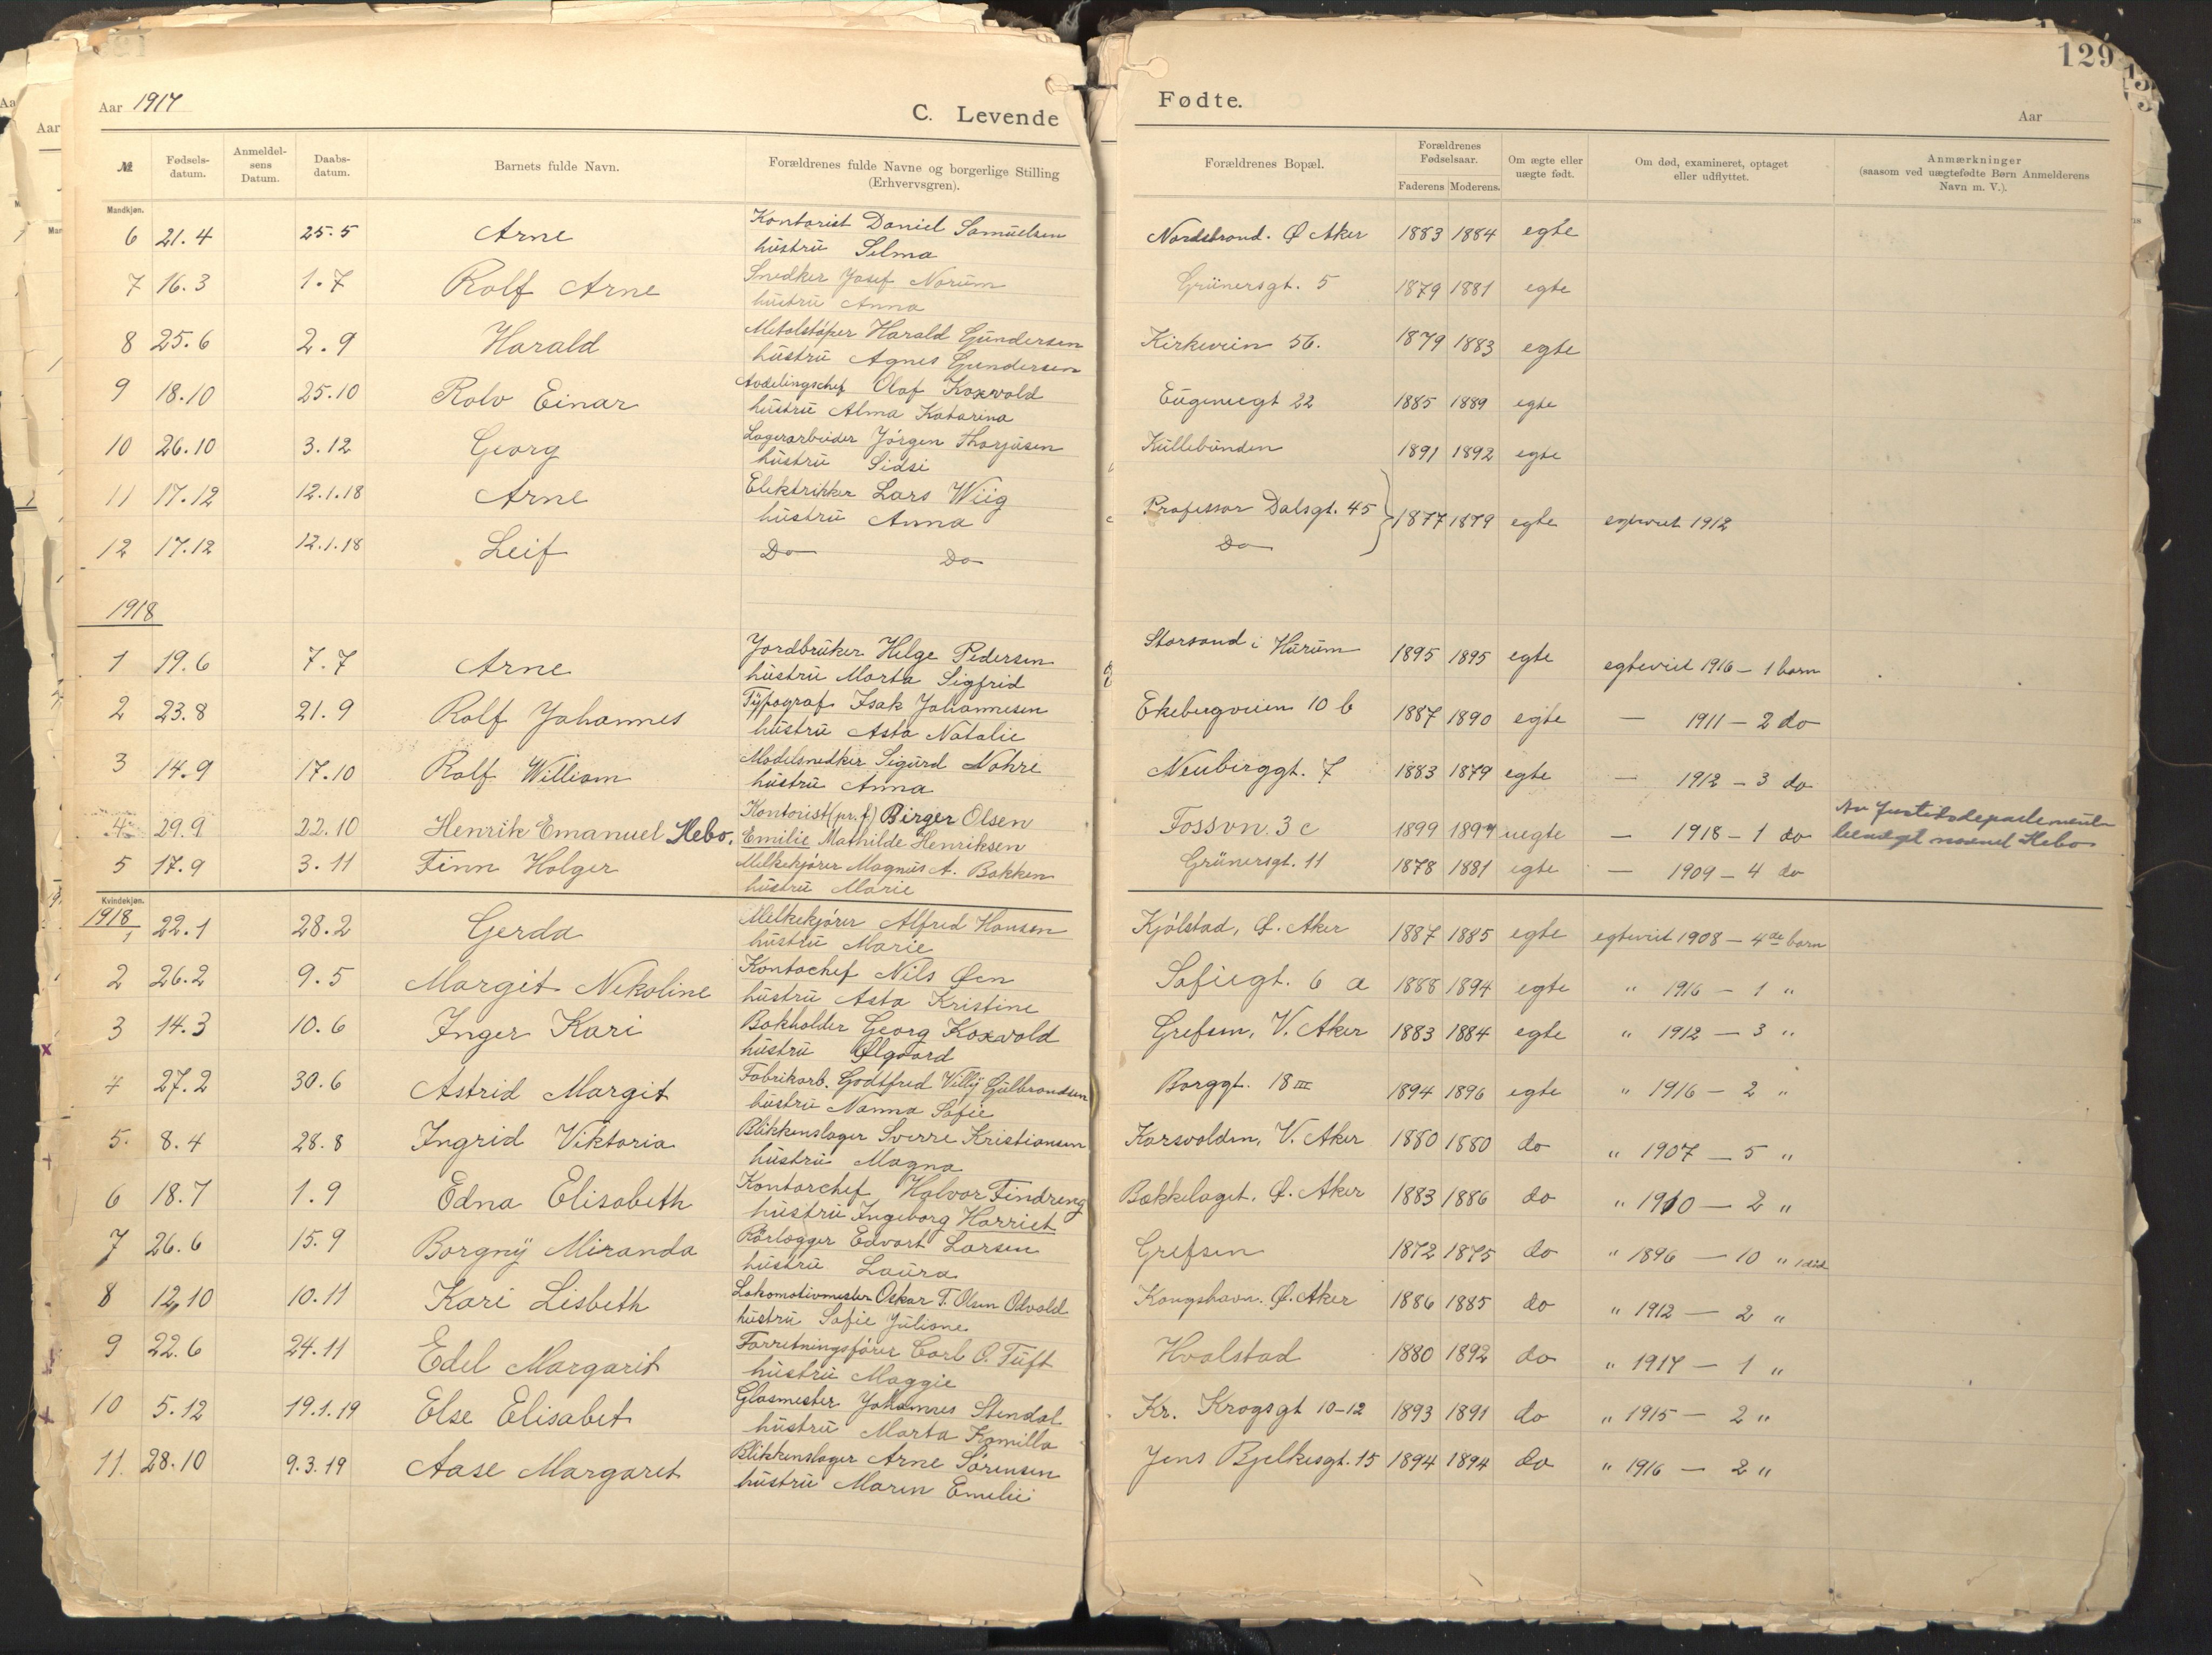 129
Aar 1917
C. Levende
Fødte.
Aar
№
Fødsels-
datum.
Anmeldel-
sens
Datum.
Daabs-
datum.
Barnets fulde Navn.
Forældrenes fulde Navne og borgerlige Stilling
(Erhvervsgren).
Forældrenes Bopæl.
Forældrenes
Fødselsaar.
Faderens Moderens.
Om ægte eller
uægte født.
Om død, examineret, optaget
eller udflyttet.
Anmærkninger
(saasom ved uægtefødte Børn Anmelderens
Navn m. V.).
Mandkjøn.
6 21.4 25.5 Arne Kontorist Daniel Samuelsen Nordstrand. Ø Aker 1883 1884 egte
hustru Selma
7 16.3 1.7 Rolf Arne Snedker Josef Norum Grünersgt. 5 1879 1881 egte
hustru Anna
8 25.6 2.9 Harald Metalstøper Harald Gundersen Kirkevein 56. 1879 1883 egte
hustru Agnes Gundersen
9 18.10 25.10 Rolv Einar Avdelingschef Olaf Koxvold Eugeniegt 22 1885 1889 egte
hustru Alma Katarina
10 26.10 3.12 Georg Lagerarbeider Jørgen Thorjusen Kullebunden 1891 1892 egte
hustru Sidsi
11 17.12 12.1.18 Arne Elektrikker Lars Wiig Professor Dalsgt. 45 1877 1879 egte 1912
hustru Anna
12 17.12 12.1.18 Leif Do Do Do
1918
1 19.6 7.7 Arne Jordbruker Helge Pedersen Storsand i Hurum 1895 1895 egte egteviet 1916 – 1 barn
hustru Marta Sigfrid
2 23.8 21.9 Rolf Johannes Typograf Isak Johannesen Ekebergveien 10 b 1887 1890 egte — 1911 – 2 do
hustru Asta Natalie
3 14.9 17.10 Rolf William Modelsnedker Sigurd Nohre Neuberggt. 7 1883 1879 egte — 1912 – 3 do
hustru Anna
4 29.9 22.10 Henrik Emanuel Hebo. Kontorist (pr.f.) Birger Olsen Fossvn. 3 c 1899 1897 uegte — 1918 – 1 do Av Justisdepartement
Emilie Mathilde Henriksen navnet Hebo
5 17.9 3.11 Finn Holger Melkekjører Magnus A. Bakken Grünersgt. 11 1878 1881 egte — 1909 – 4 do
hustru Marie
Kvindekjøn.
1918
1 22.1 28.2 Gerda Melkekjører Alfred Hansen Kjølstad, Ø. Aker 1887 1885 egte egteviet 1908 – 4de barn
hustru Marie
2 26.2 9.5 Margit Nekoline Kontochef Nils Øen Sofiegt. 6 a 1888 1894 egte " 1916 – 1 "
hustru Asta Kristine
3 14.3 10.6 Inger Kari Bokholder Georg Koxvold Grefsen, V. Aker 1883 1884 egte " 1912 – 3 "
hustru Ølgaard
4 27.2 30.6 Astrid Margit Fabrikarb. Godtfred Villy Gulbrandsen Borggt. 18 III 1894 1896 egte " 1916 – 2 "
hustru Nanna Sofie
5. 8.4 28.8 Ingrid Viktoria Blikkenslager Sverre Kristiansen Korsvolden, V. Aker 1880 1880 do " 1907 – 5 "
hustru Magna
6 18.7 1.9 Edna Elisabeth Kontorchef Halvor Findreng Bækkelaget. Ø. Aker 1883 1886 do " 1910 – 2 "
hustru Ingeborg Harriet
7 26.6 15.9 Borgny Miranda Rørlægger Edvart Larsen Grefsen 1872 1875 do " 1896 – 10 "
hustru Laura
8 12.10 10.11 Kari Lisbeth Lokomotivmester Oskar T. Olsen Odvold Kongshavn. Ø. Aker 1886 1885 do " 1912 – 2 "
hustru Sofie Juliane
9 22.6 24.11 Edel Margarit Forretningsfører Carl O. Tuft Hvalstad 1880 1892 do " 1917 – 1 "
hustru Maggie
10 5.12 19.1.19 Else Elisabet Glasmester Johannes Stendal Kr. Krogsgt 10–12 1893 1891 do " 1915 – 2 "
hustru Marta Kamilla
11. 28.10 9.3.19 Aase Margaret Blikkenslager Arne Sørensen Jens Bjelkesgt. 15 1894 1894 do " 1916 – 2 "
hustru Maren Emelie